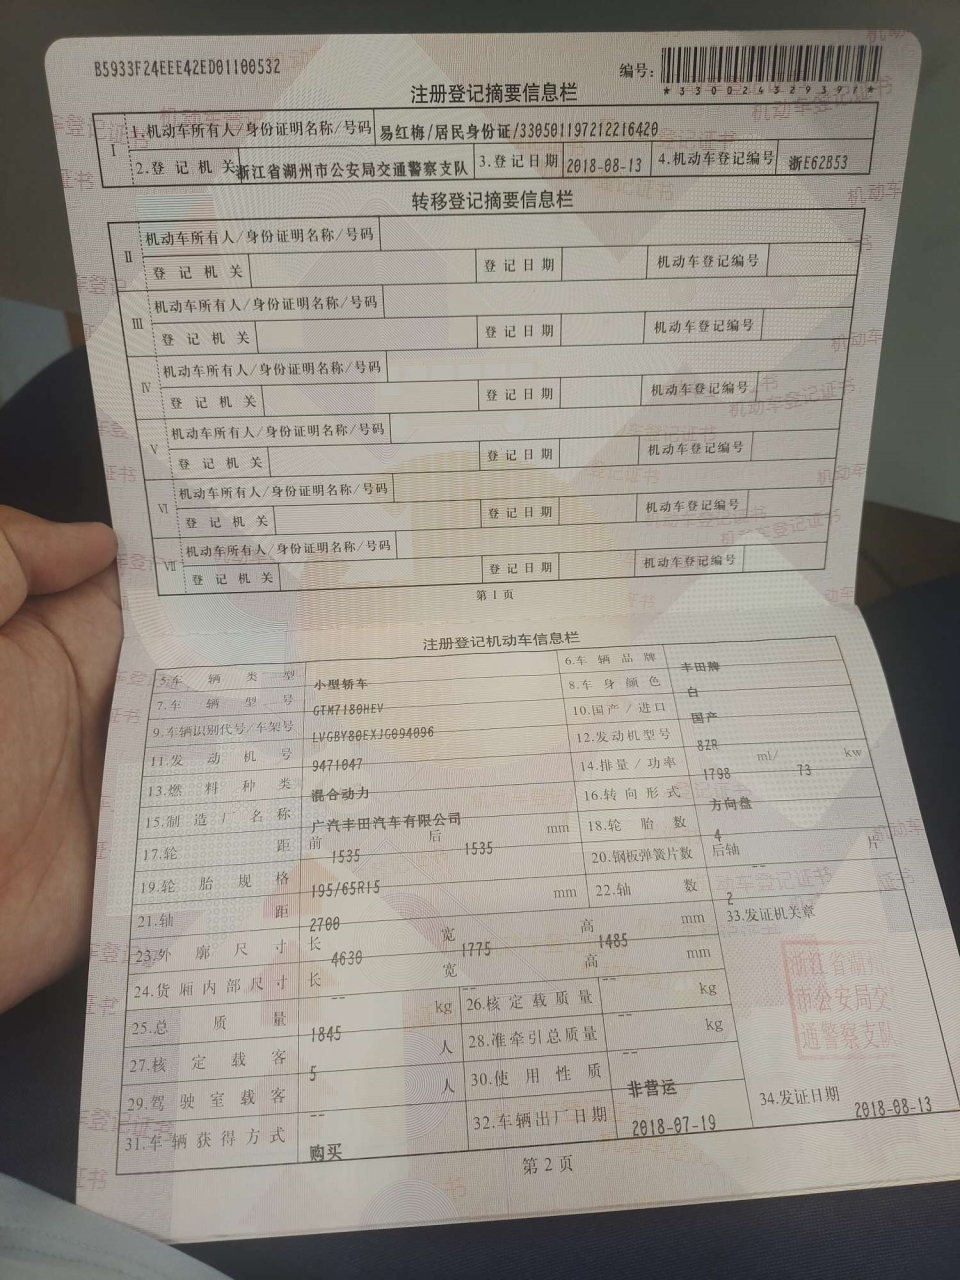 B5933F24EEE42ED01100532
编号:
*330024329397*
注册登记摘要信息栏
I
1.机动车所有人/身份证明名称/号码 易红梅/居民身份证/330501197212216420
2.登记机关 浙江省湖州市公安局交通警察支队 3.登记日期 2018-08-13 4.机动车登记编号 浙E62B53
转移登记摘要信息栏
II
机动车所有人/身份证明名称/号码
登记机关 登记日期 机动车登记编号
III
机动车所有人/身份证明名称/号码
登记机关 登记日期 机动车登记编号
IV
机动车所有人/身份证明名称/号码
登记机关 登记日期 机动车登记编号
V
机动车所有人/身份证明名称/号码
登记机关 登记日期 机动车登记编号
VI
机动车所有人/身份证明名称/号码
登记机关 登记日期 机动车登记编号
VII
机动车所有人/身份证明名称/号码
登记机关 登记日期 机动车登记编号
第1页
注册登记机动车信息栏
5.车辆类型 小型轿车 6.车辆品牌 丰田牌
7.车辆型号 GTM7180HEV 8.车身颜色 白
9.车辆识别代号/车架号 LVGBY80EXJG094096 10.国产/进口 国产
11.发动机号 9471047 12.发动机型号 8ZR
13.燃料种类 混合动力 14.排量/功率 1798 ml/ 73 kw
15.制造厂名称 广汽丰田汽车有限公司 16.转向形式 方向盘
17.轮距 前 1535 后 1535 mm 18.轮胎数 4
19.轮胎规格 195/65R15 20.钢板弹簧片数 后轴 -- 片
21.轴距 2700 mm 22.轴数 2
23.外廓尺寸 长 4630 宽 1775 高 1485 mm 33.发证机关章
24.货厢内部尺寸 长 -- 宽 -- 高 -- mm
浙江省湖州
市公安局交
通警察支队
25.总质量 1845 kg 26.核定载质量 -- kg
27.核定载客 5 人 28.准牵引总质量 -- kg
29.驾驶室载客 -- 人 30.使用性质 非营运
31.车辆获得方式 购买 32.车辆出厂日期 2018-07-19 34.发证日期 2018-08-13
第2页